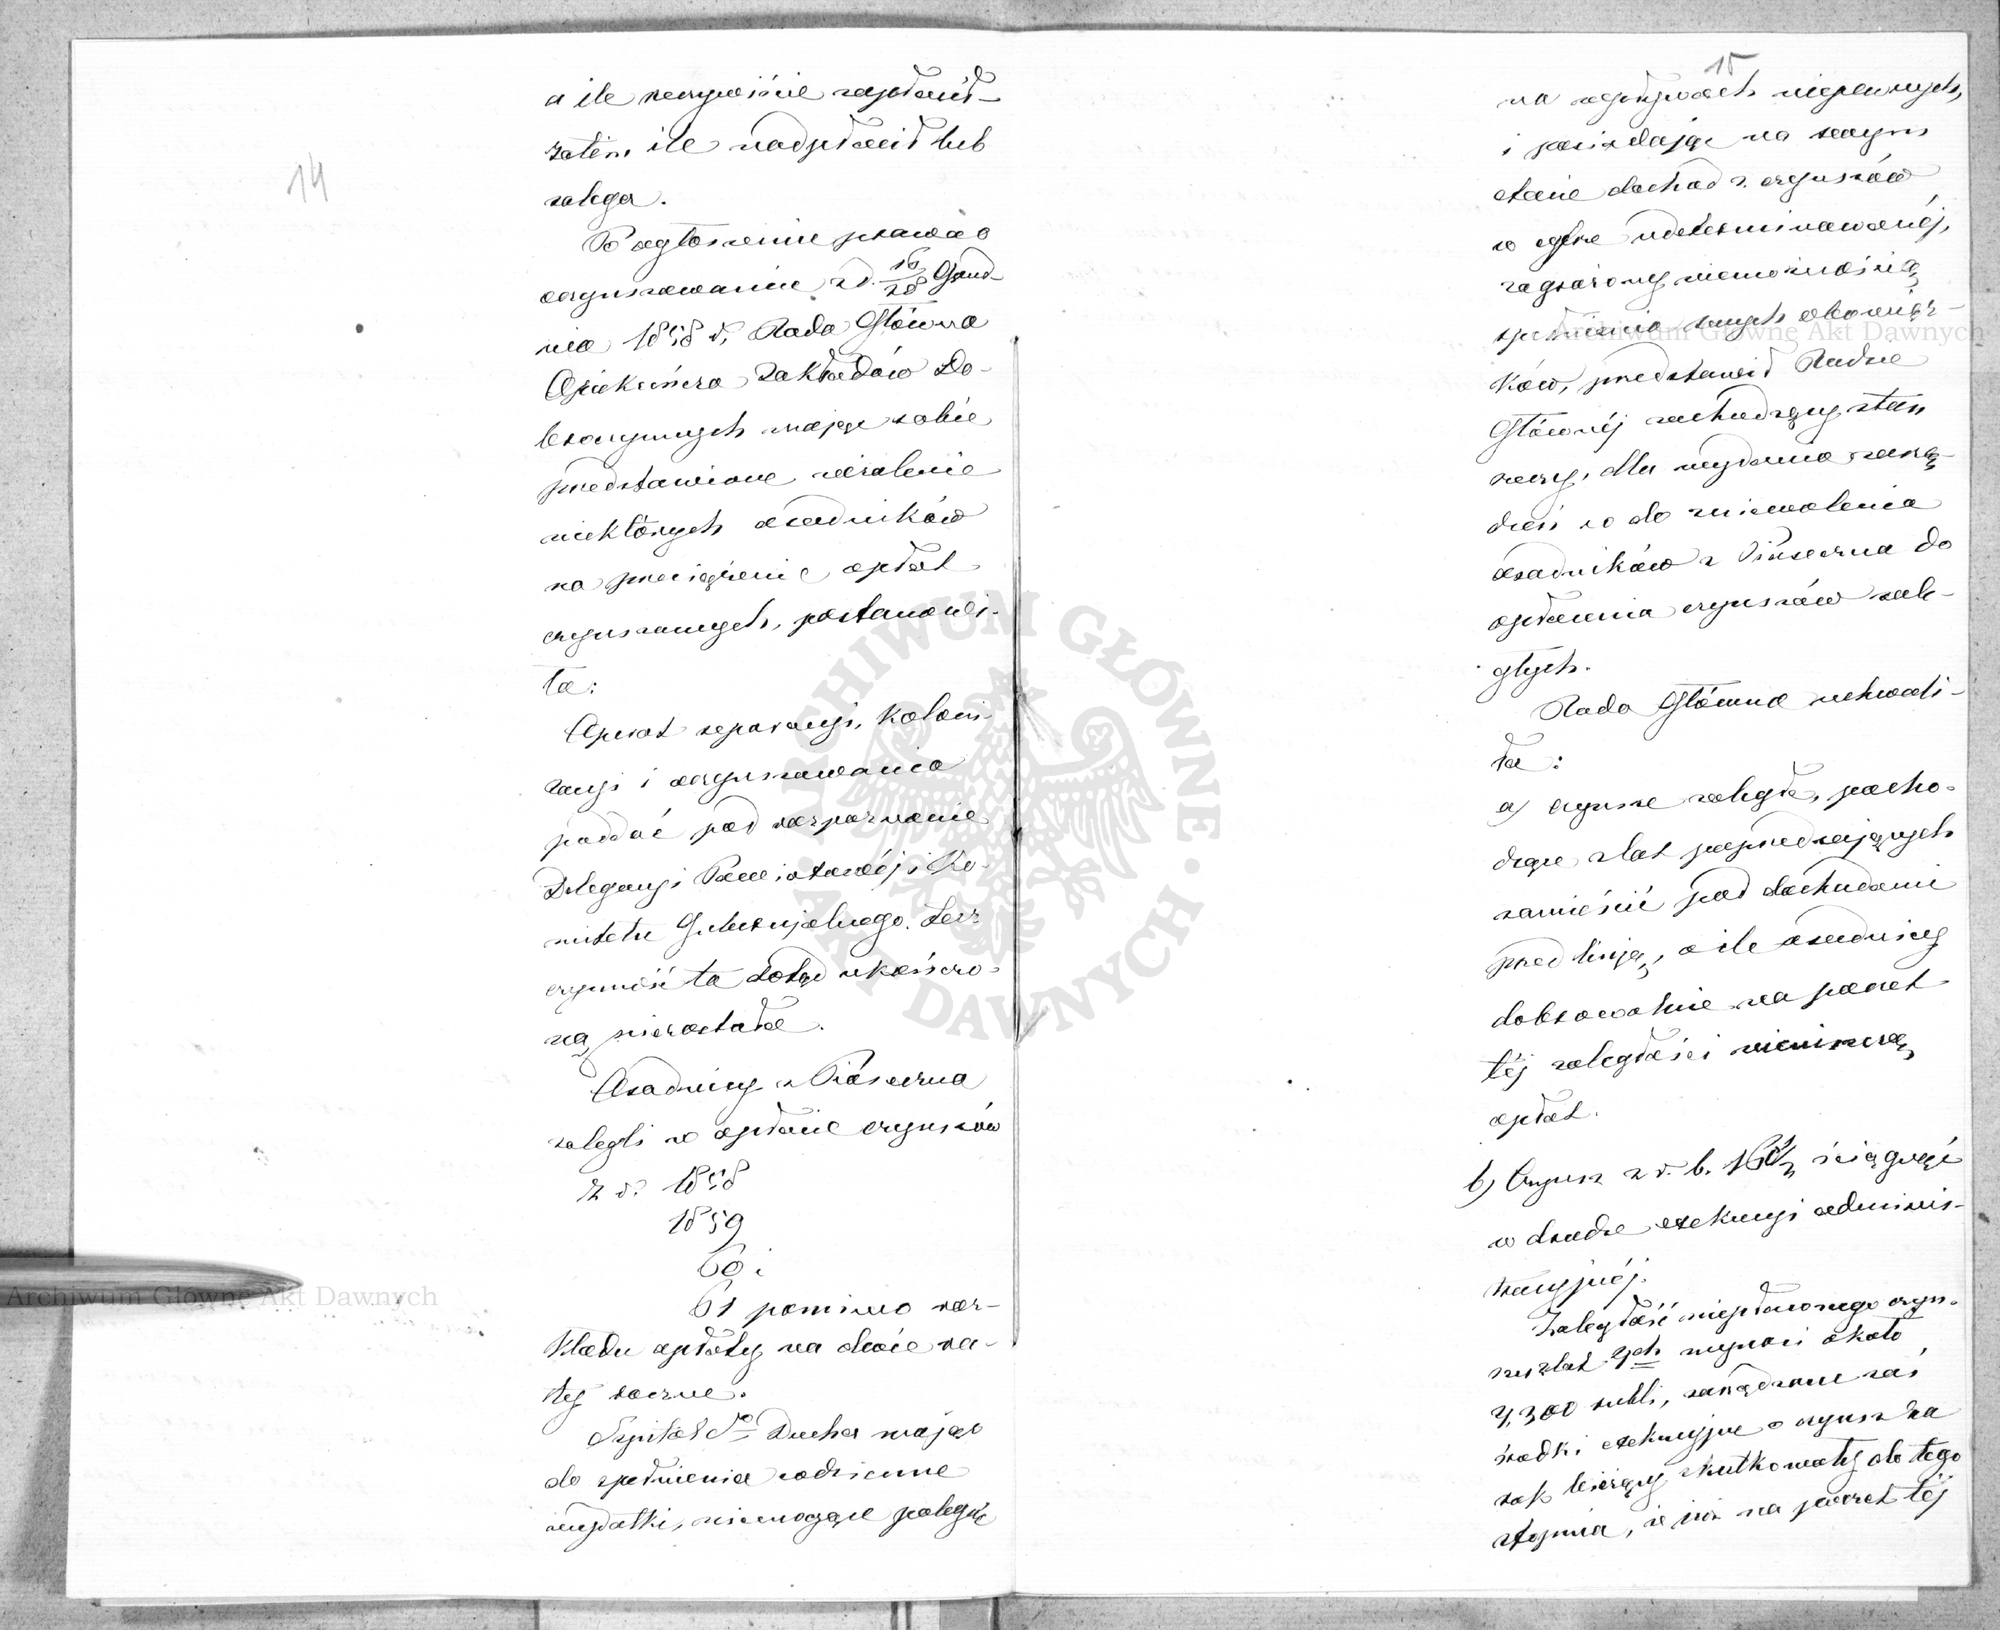 14
a ile rzeczywiście zapłacił
zatem ile nadpłacił lub
zalega.
Po ogłoszeniu prawa o
oczynszowaniu z d. 16/28 Grud-
nia 1858 r. Rada Główna
Opiekuńcza Zakładów Do-
broczynnych mając sobie
przedstawione użalenie
niektórych osadników
na przeciążenie opłat
czynszowych, postanowi-
ła:
Operat separacyi, koloni-
zacyi i oczynszowania
poddać pod rozpoznanie
Delegacyi Powiatowéj i Ko-
mitetu Gubernijalnego. Lecz
czynność ta dotąd ukończo-
ną niezostała.
Osadnicy z Piaseczna
zalegli w opłacie czynszów
z r. 1858
1859
60 i
61 pomimo roz-
kładu opłaty na dwie ra-
ty roczne.
Szpital Sgo Ducha mając
do spełnienia codzienne
wydatki, niemogąc polegać
15
na wpływach niepewnych,
i posiadając na swym
etacie dochód z czynszów
w cyfrze zdeterminowanéj,
zagrożony niemożnością
spełnienia swych obowiąz-
ków, przedstawił Radzie
Głównéj zachodzący stan
rzeczy, dla wydania zarzą-
dzeń co do zniewolenia
osadników z Piaseczna do
opłacenia czynszów zale-
głych.
Rada Główna uchwali-
ła:
a) czynsze zaległe, pocho-
dzące z lat poprzedzających
zamieścić pod dochodami
przed liniją, o ile osadnicy
dobrowolnie na poczet
téj zaległości nieniszczą
opłat.
b) Czynsz z r. b. 1861 ściągnąć
w drodze exekucyi adminis-
tracyjnéj.
Zaległość niepłaconego czyn-
szu z lat 3ch wynosi około
3,300 rubli, zarządzone zaś
środki exekucyjne o czynsz za
rok bieżący skutkowały do tego
stopnia, że już na poczet téj
Archiwum Główne Akt Dawnych
Archiwum Główne Akt Dawnych
ARCHIWUM GŁÓWNE AKT DAWNYCH